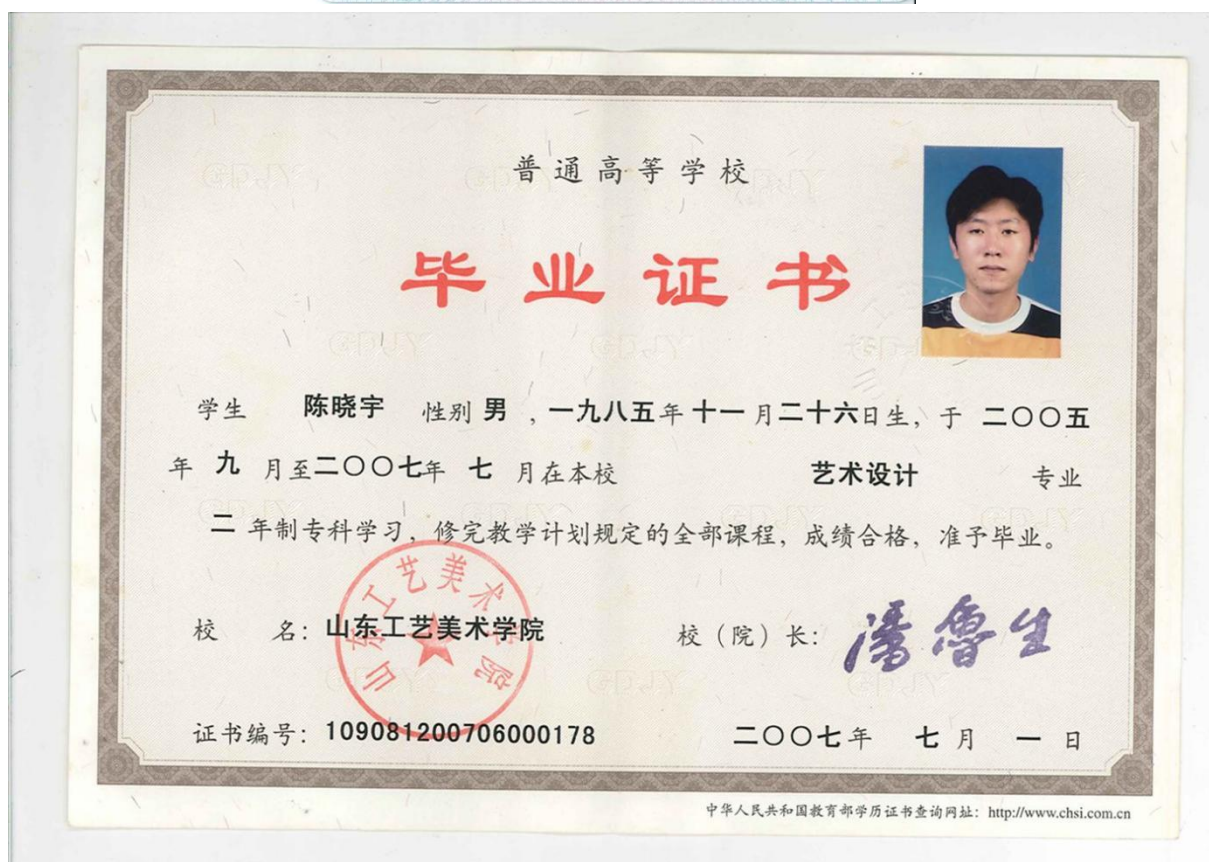 普通高等学校
毕业证书
学生 陈晓宇 性别 男 ，一九八五年 十一 月二十六日生，于 二〇〇五
年 九 月至二〇〇七年 七 月在本校 艺术设计 专业
二 年制专科学习，修完教学计划规定的全部课程，成绩合格，准予毕业。
山东工艺美术学院
校 名：山东工艺美术学院 校（院）长：潘鲁生
证书编号：109081200706000178 二〇〇七年 七 月 一 日
中华人民共和国教育部学历证书查询网址：http://www.chsi.com.cn